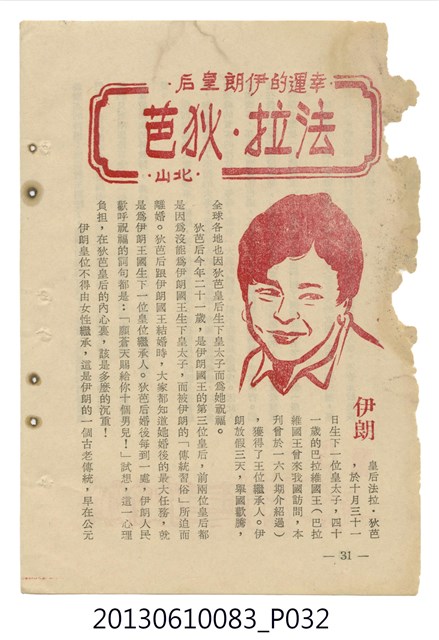 幸運的伊朗皇后·
法拉·狄芭
·北山·
伊朗
皇后法拉·狄芭
，於十月三十一
日生下一位皇太子，四十
一歲的巴拉維國王（巴拉
維國王曾來我國訪問，本
刊曾於一六八期介紹過）
，獲得了王位繼承人。伊
朗放假三天，舉國歡騰，
全球各地也因狄芭皇后生下皇太子而為她祝福。
狄芭后今年二十一歲，是伊朗國王的第三位皇后，前兩位皇后都
是因為沒能為伊朗國王生下皇太子，而被伊朗的「傳統習俗」所迫而
離婚。狄芭后跟伊朗國王結婚時，大家都知道她婚後的最大任務，就
是為伊朗王國生下一位皇位繼承人。狄芭后婚後每到一處，伊朗人民
歡呼祝福的詞句都是：「願蒼天賜給你十個男兒！」試想，這一心理
負担，在狄芭皇后的內心裏，該是多麼的沉重！
伊朗皇位不得由女性繼承，這是伊朗的一個古老傳統，早在公元
— 31 —
20130610083_P032